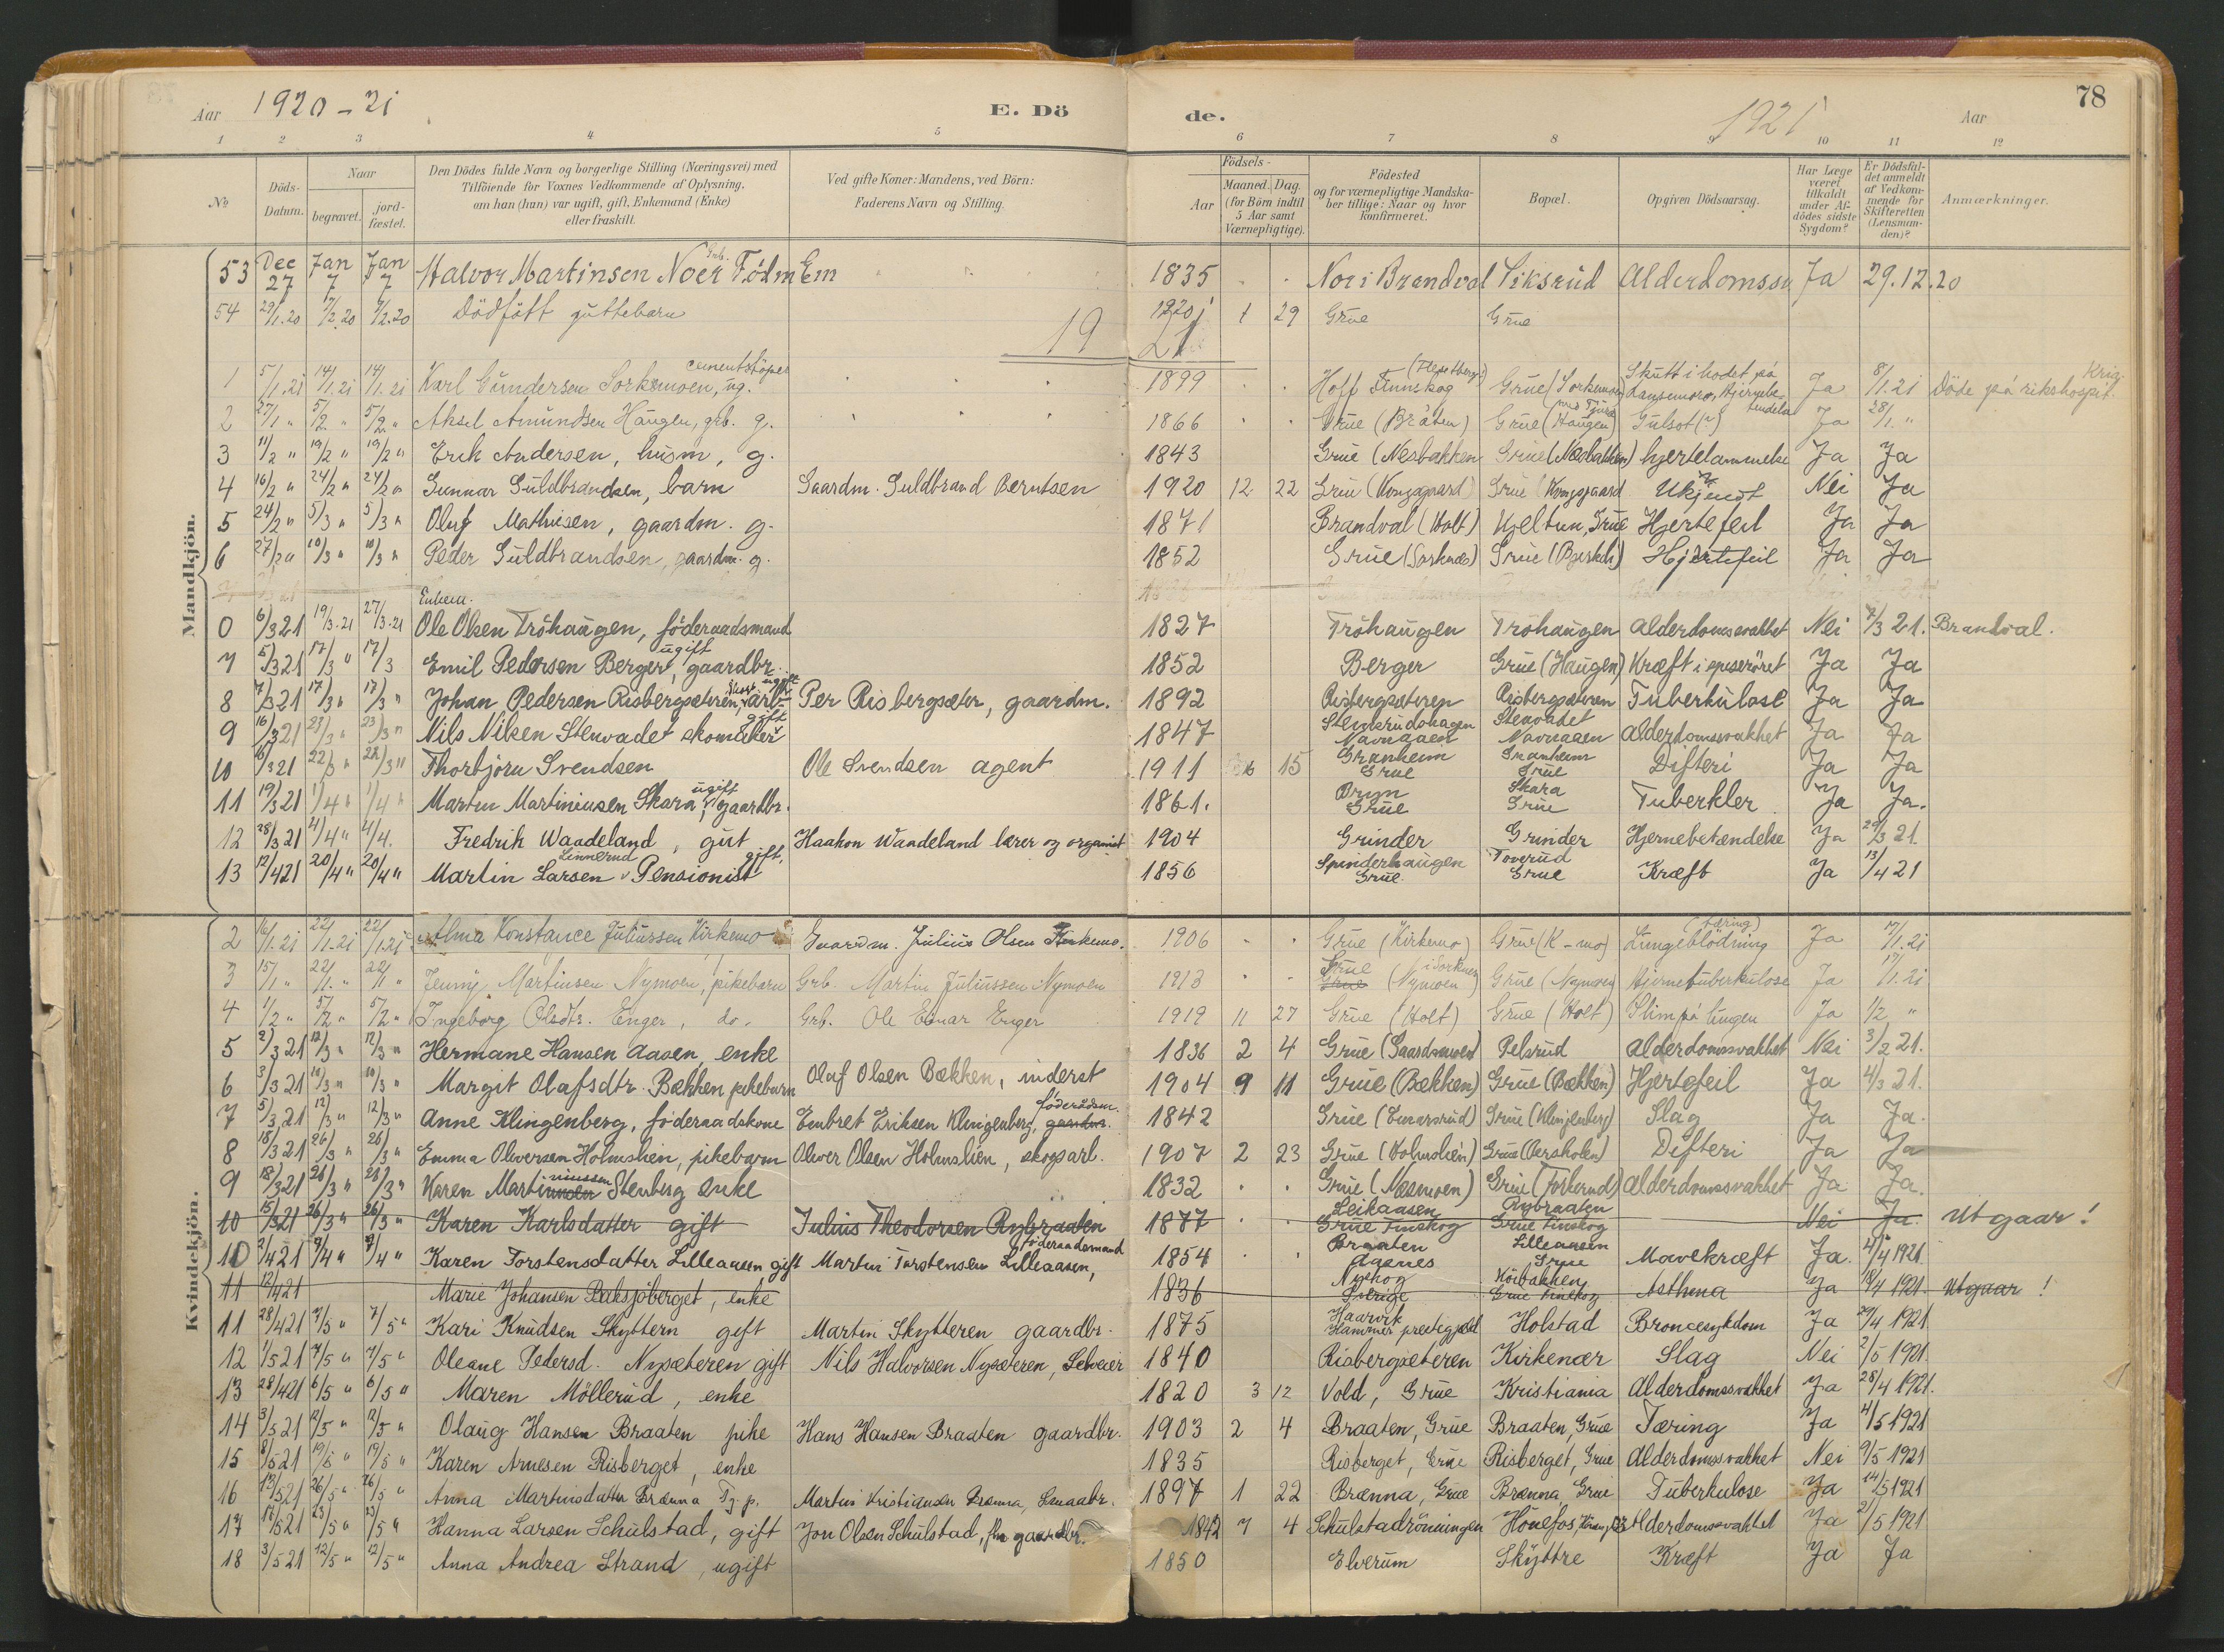 Aar 1920-21 E. Döde. 1921 Aar 78
1 2 3 4 5 6 7 8 9 10 11 12
No
Döds-Datum.
Naar begravet. jord-fæstet.
Den Dödes fulde Navn og borgerlige Stilling (Næringsvei) med Tilföiende for Voxnes Vedkommende af Oplysning, om han (hun) var ugift, gift, Enkemand (Enke) eller fraskilt.
Ved gifte Koner: Mandens, ved Börn: Faderens Navn og Stilling.
Födsels- Aar Maaned. Dag. (for Börn indtil 5 Aar samt Værnepligtige).
Födested og for værnepligtige Mandskaber tillige: Naar og hvor Konfirmeret.
Bopæl.
Opgiven Dödsaarsag.
Har Læge været tilkaldt under Afdödes sidste Sygdom?
Er Dödsfaldet anmeldt af Vedkommende for Skifteretten (Lensmanden)?
Anmærkninger.
Mandkjön.
53 Dec 27 Jan 7 Jan 7 Halvor Martinsen Noer Em 1835 Nor i Brandval Siksrud Ja 29.12.20
54 29/1.20 7/2.20 7/2.20 Dödfött guttebarn 1920 1 29 Grue Grue
1921
1 5/1.21 14/1.21 14/1.21 Karl Gundersen Sorkmoen, ug. cementstöper 1899 Hoff Finnskog Grue (Sorkmoen) Skutt i hodet på Ja 8/1.21 Döde på rikshospit. Krig.
2 27/1 " 5/2 " 5/2 " Aksel Amundsen Haugen, grb. g. 1866 Grue (Bråten) Grue (Haugen) Gulsot Ja 28/1 "
3 11/2 " 19/2 " 19/2 " Erik Andersen, husm, g. 1843 Grue (Nesbakken Grue (Næsbakken) hjertelammelse Ja Ja
4 16/2 " 24/2 " 24/2 " Gunnar Guldbrandsen, barn Gaardm. Guldbrand Berntsen 1920 12 22 Grue (Kongsgaard) Grue (Kongsgaard Ukjendt Nei Ja
5 24/2 " 5/3 " 5/3 " Oluf Mathisen, gaardm. g. 1871 Brandval (Holt) Kjeltun, Grue Hjertefeil Ja Ja
6 27/2 " 10/3 " 10/3 " Peder Guldbrandsen, gaardm. g. 1852 Grue (Sorknæs) Grue (Bjerkli) Hjertefeil Ja Ja
0 6/3 21 19/3.21 27/3.21 Enkem. Ole Olsen Tröhaugen, föderaadsmand 1827 Tröhaugen Tröhaugen Alderdomssvakhet Nei 7/3 21. Brandval.
7 5/3 21 17/3 " 17/3 Emil Pedersen Berger, ugift gaardbr. 1852 Berger Grue (Haugen) Kræft i spiseröret Ja Ja
8 7/3 21 17/3 " 17/3 " Johan Pedersen Risbergsæteren, skogarb. ugift Per Risbergsæter, gaardm. 1892 Risbergsæteren Risbergsæteren Tuberkulose Ja Ja
9 16/3 21 23/3 " 23/3 " Nils Nilsen Stenvadet skomaker gift 1847 Stensrudshagen Navnaaen Stenvadet Navnaaen Alderdomssvakhet Ja Ja
10 6/3 21 22/3 " 22/3 " Thorbjörn Svendsen Ole Svendsen agent 1911 15 Granheim Grue Granheim Grue Difteri Ja Ja
11 19/3 21 1/4 " 1/4 " Martin Martiniusen Skara, ugift gaardbr. 1861. Bryn Grue Skara Grue Tuberkler Ja Ja.
12 28/3 21 4/4 " 4/4. Fredrik Waadeland, gut Haakon Waadeland lærer og organist 1904 Grinder Grinder Hjernebetændelse Ja 29/3 21.
13 12/4 21 20/4 " 20/4 " Martin Larsen Linnerud Pensionist gift. 1856 Spinderhaugen Grue. Toverud Grue Kræft Ja 13/4 21
Kvindekjön.
2 16/1.21 22/1.21 22/1.21 Alma Konstance Juliussen Kirkemo Gaardm. Julius Olsen Kirkemo. 1906 Grue (Kirkemo) Grue (K-mo) Lungeblödning (tæring) Ja 17/1.21
3 15/1 " 22/1 " 22/1 " Jenny Martinsen Nymoen, pikebarn Grb. Martin Juliussen Nymoen 1913 Grue (Nymoen) Grue (Nymoen) Hjernetuberkulose Ja 17/1.21
4 1/2 " 5/2 " 5/2 " Ingeborg Olsdtr. Enger, do. Grb. Ole Einar Enger 1919 11 27 Grue (Holt) Grue (Holt) Slim på lungen Ja 1/2 "
5 2/3 21 12/3 " 12/3 " Hermane Hansen Aasen, enke 1836 2 4 Grue (Gaardsmoen) Pelsrud Alderdomssvakhet Nei 3/3 21.
6 3/3 21 10/3 " 10/3 " Margit Olafsdtr. Bækken pikebarn Olaf Olsen Bækken, inderst 1904 9 11 Grue (Bækken) Grue (Bækken) Hjertefeil Ja 4/3 21.
7 5/3 21 12/3 " 12/3 " Anne Klingenberg, föderaadskone Embret Eriksen Klingenberg, föderådsm. gaardm. 1842 Grue (Einarsrud) Grue (Klingenberg) Slag Ja Ja.
8 18/3 21 26/3 " 26/3 " Emma Oliversen Holmslien, pikebarn Oliver Olsen Holmslien, skogsarb. 1907 2 23 Grue (Holmslien) Grue Difteri Ja Ja
9 18/3 21 26/3 " 26/3 " Karen Martiniussen Stenberg enke 1832 Grue (Næsmoen) Grue (Torkerud) Alderdomssvakhet Ja Ja.
10 15/3 21 26/3 " 26/3 " Karen Karlsdatter gift Julius Theodorsen Rybraaten 1877 Leikaasen Grue Finskog Rybraaten Grue Finskog Nei Ja. Utgaar!
10 2/4 21 7/4 " 7/4 " Karen Torstensdatter Lilleaasen gift Martin Torstensen Lilleaasen, föderaadsmand 1854 Braaten Aasnes Lilleaasen Grue Mavekræft Ja. 4/4 1921
11 12/4 21 Marie Johansen Baksjöberget, enke 1836 Nyskog Sverige Höibakken Grue Finskog Asthma Ja 18/4 1921. Utgaar!
11 28/4 21 7/5 " 7/5 " Kari Knudsen Skyttern gift Martin Skytteren gaardbr. 1875 Haarvik Hammer prestegjæld Holstad Broncesykdom Ja 29/4 1921
12 1/5 21 7/5 " 7/5 " Oleane Pedersd. Nysæteren gift Nils Halvorsen Nysæteren, Selveier 1840 Risbergsæteren Kirkenær Slag Nei 2/5 1921.
13 28/4 21 6/5 " 6/5 " Maren Möllerud, enke 1820 3 12 Vold, Grue Kristiania Alderdomssvakhet Ja 28/4 1921.
14 3/5 21 12/5 " 12/5 " Olaug Hansen Braaten pike Hans Hansen Braaten gaardbr. 1903 2 4 Braaten, Grue Braaten, Grue Tæring Ja 4/5 1921
15 8/5 21 19/5 " 19/5 " Karen Arnesen Risberget, enke 1835 Risberget, Grue Risberget, Grue Alderdomssvakhet Nei 9/5 1921
16 13/5 21 26/5 " 26/5 " Anna Martinsdatter Brænna Tj. p. Martin Kristiansen Brænna, Smaabr. 1897 1 22 Brænna, Grue Brænna, Grue Tuberkulose Ja 14/5 1921
17 17/5 21 23/5 " 23/5 " Hanna Larsen Schulstad, gift Jon Olsen Schulstad, gaardbr. 1842 7 4 Schulstadrönningen Hönefos, Alderdomssvakhet Ja 21/5 1921
18 3/5 21 12/5 " 12/5 " Anna Andrea Strand, ugift 1850 Elverum Skyttre Kræft Ja Ja